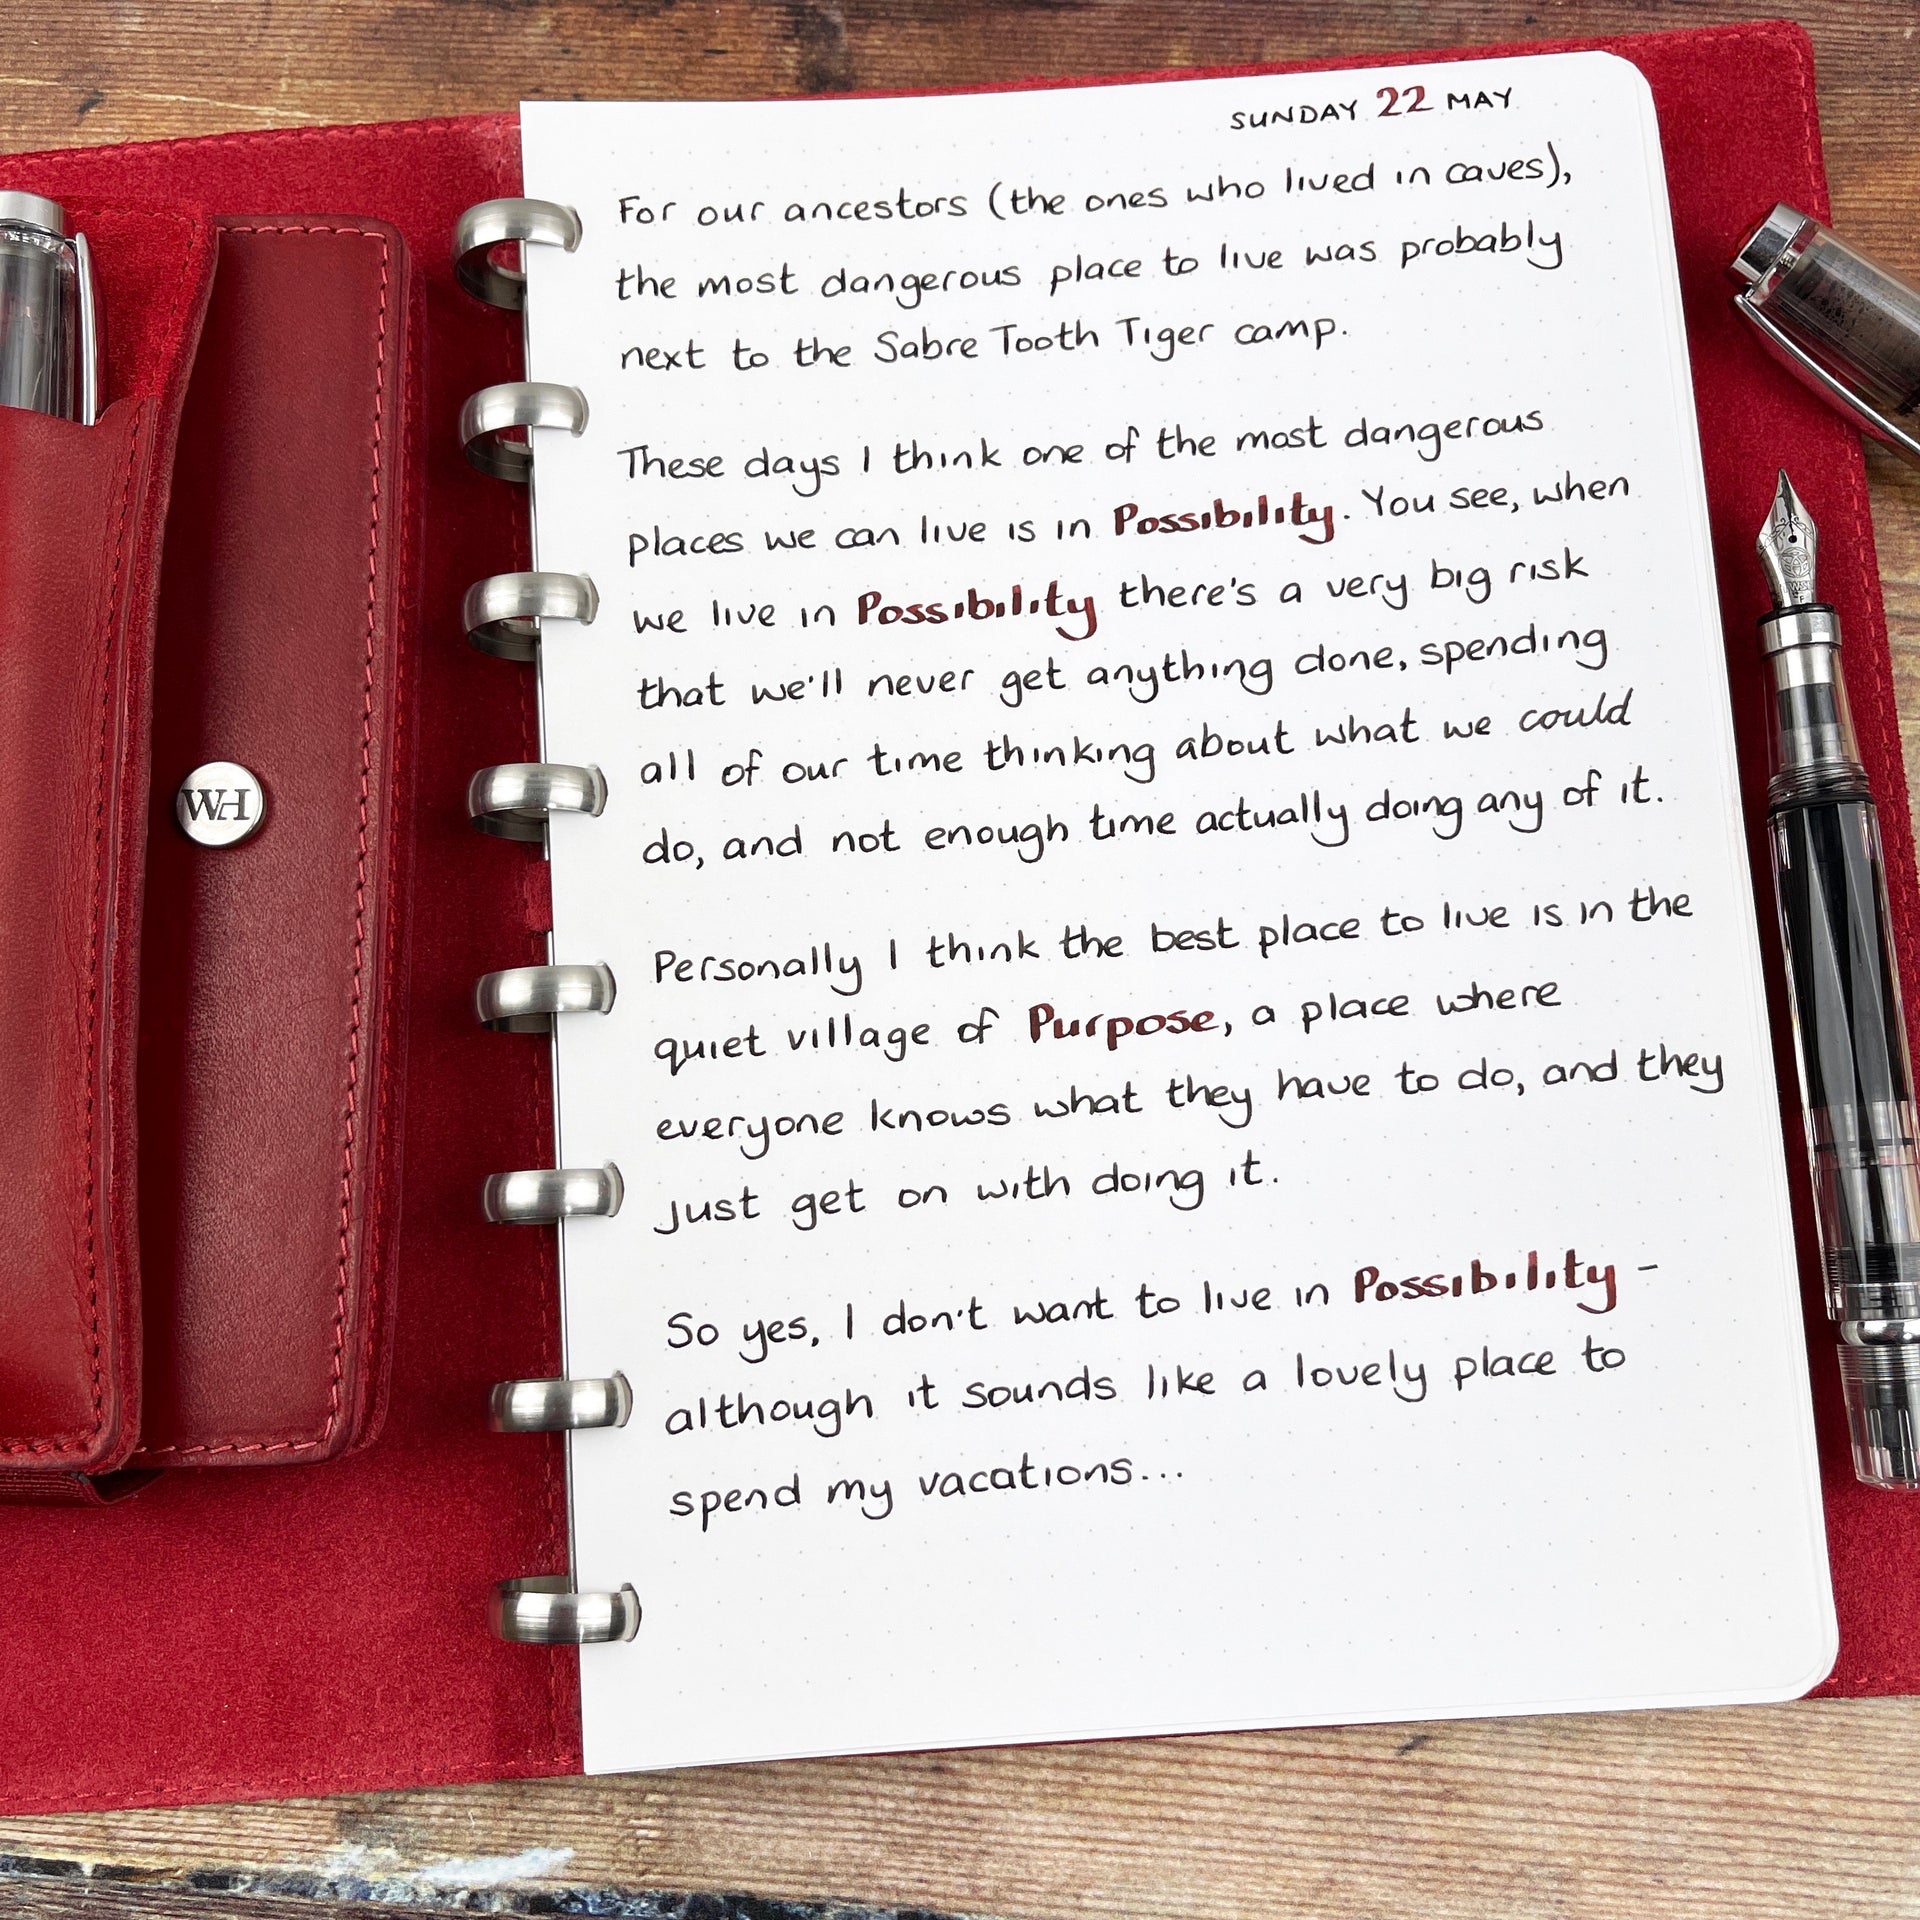 SUNDAY 22 MAY
For our ancestors (the ones who lived in caves),
the most dangerous place to live was probably
next to the Sabre Tooth Tiger camp.
These days I think one of the most dangerous
places we can live is in Possibility. You see, when
we live in Possibility there's a very big risk
that we'll never get anything done, spending
all of our time thinking about what we could
do, and not enough time actually doing any of it.
Personally I think the best place to live is in the
quiet village of Purpose, a place where
everyone knows what they have to do, and they
just get on with doing it.
So yes, I don't want to live in Possibility -
although it sounds like a lovely place to
spend my vacations...
WH